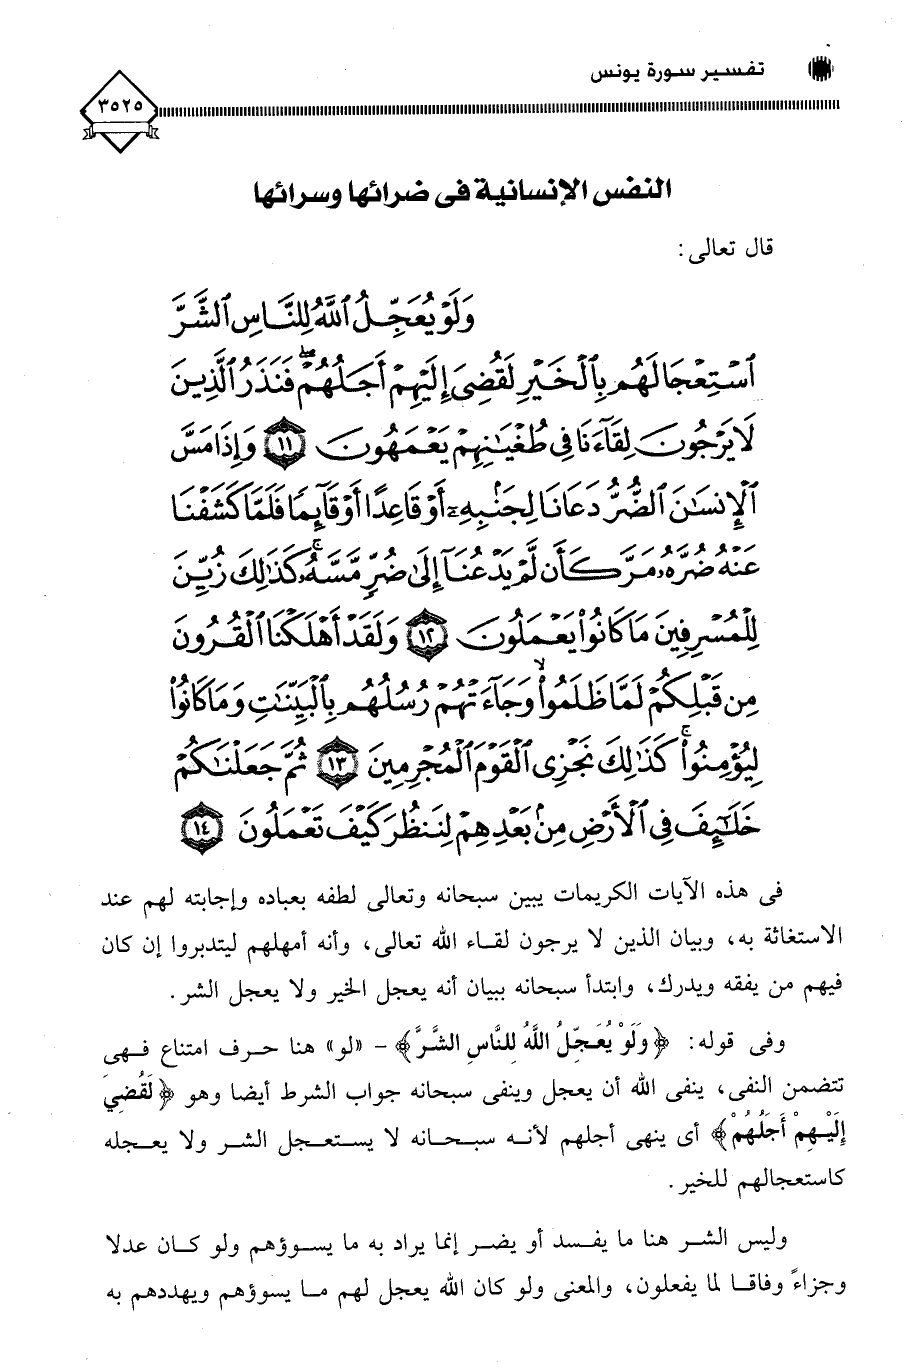 تفسير سورة يونس
٣٥٢٥
النفس الإنسانية فى ضرائها وسرائها
قال تعالى:
وَلَوْ يُعَجِّلُ ٱللَّهُ لِلنَّاسِ ٱلشَّرَّ
ٱسْتِعْجَالَهُم بِٱلْخَيْرِ لَقُضِىَ إِلَيْهِمْ أَجَلُهُمْ ۖ فَنَذَرُ ٱلَّذِينَ
لَا يَرْجُونَ لِقَآءَنَا فِى طُغْيَـٰنِهِمْ يَعْمَهُونَ ١١ وَإِذَا مَسَّ
ٱلْإِنسَـٰنَ ٱلضُّرُّ دَعَانَا لِجَنۢبِهِۦٓ أَوْ قَاعِدًا أَوْ قَآئِمًا فَلَمَّا كَشَفْنَا
عَنْهُ ضُرَّهُۥ مَرَّ كَأَن لَّمْ يَدْعُنَآ إِلَىٰ ضُرٍّ مَّسَّهُۥ ۚ كَذَٰلِكَ زُيِّنَ
لِلْمُسْرِفِينَ مَا كَانُوا۟ يَعْمَلُونَ ١٢ وَلَقَدْ أَهْلَكْنَا ٱلْقُرُونَ
مِن قَبْلِكُمْ لَمَّا ظَلَمُوا۟ ۙ وَجَآءَتْهُمْ رُسُلُهُم بِٱلْبَيِّنَـٰتِ وَمَا كَانُوا۟
لِيُؤْمِنُوا۟ ۚ كَذَٰلِكَ نَجْزِى ٱلْقَوْمَ ٱلْمُجْرِمِينَ ١٣ ثُمَّ جَعَلْنَـٰكُمْ
خَلَـٰٓئِفَ فِى ٱلْأَرْضِ مِنۢ بَعْدِهِمْ لِنَنظُرَ كَيْفَ تَعْمَلُونَ ١٤
فى هذه الآيات الكريمات يبين سبحانه وتعالى لطفه بعباده وإجابته لهم عند
الاستغاثة به، وبيان الذين لا يرجون لقاء الله تعالى، وأنه أمهلهم ليتدبروا إن كان
فيهم من يفقه ويدرك، وابتدأ سبحانه ببيان أنه يعجل الخير ولا يعجل الشر.
وفى قوله: ﴿وَلَوْ يُعَجِّلُ اللَّهُ لِلنَّاسِ الشَّرَّ﴾ - «لو» هنا حرف امتناع فهى
تتضمن النفى، ينفى الله أن يعجل وينفى سبحانه جواب الشرط أيضا وهو ﴿لَقُضِيَ
إِلَيْهِمْ أَجَلُهُمْ﴾ أى ينهى أجلهم لأنه سبحانه لا يستعجل الشر ولا يعجله
كاستعجالهم للخير.
وليس الشر هنا ما يفسد أو يضر إنما يراد به ما يسوؤهم ولو كان عدلا
وجزاءً وفاقا لما يفعلون، والمعنى ولو كان الله يعجل لهم ما يسوؤهم ويهددهم به